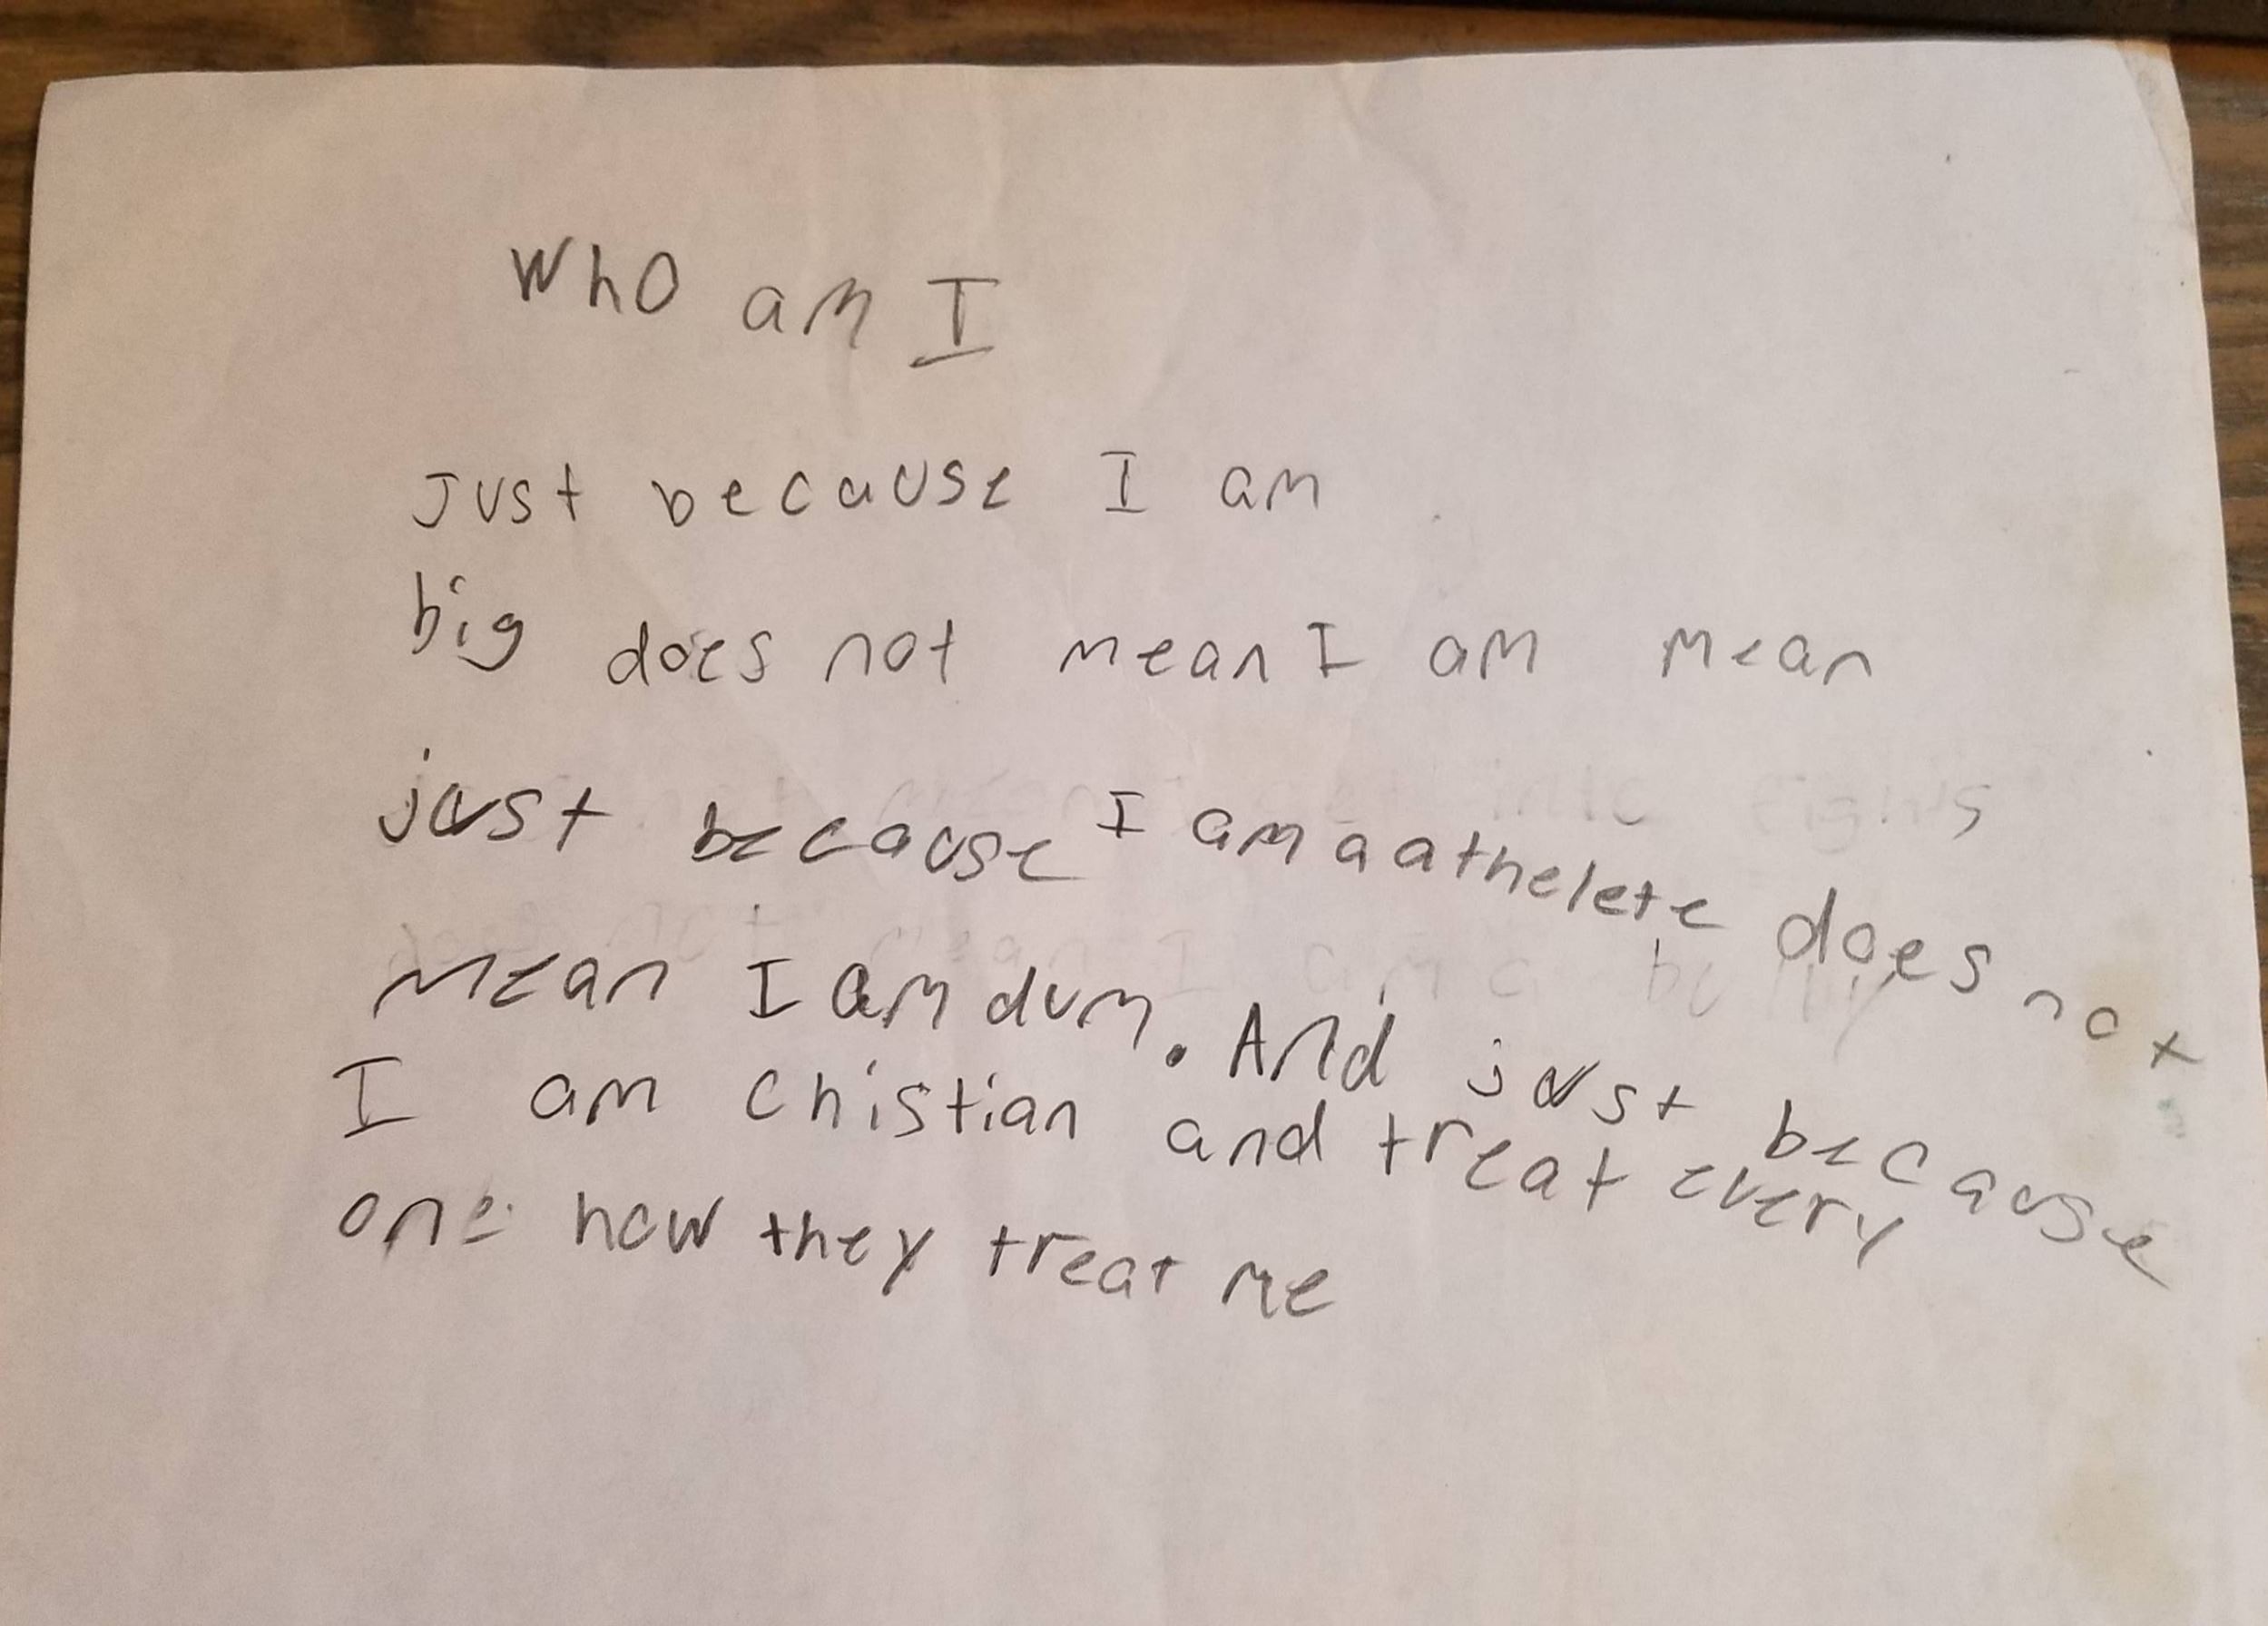 Who am I
Just because I am
big does not mean I am mean
just because I am a athelete does not
mean I am dum. And just because
I am Chistian and treat every
one how they treat me